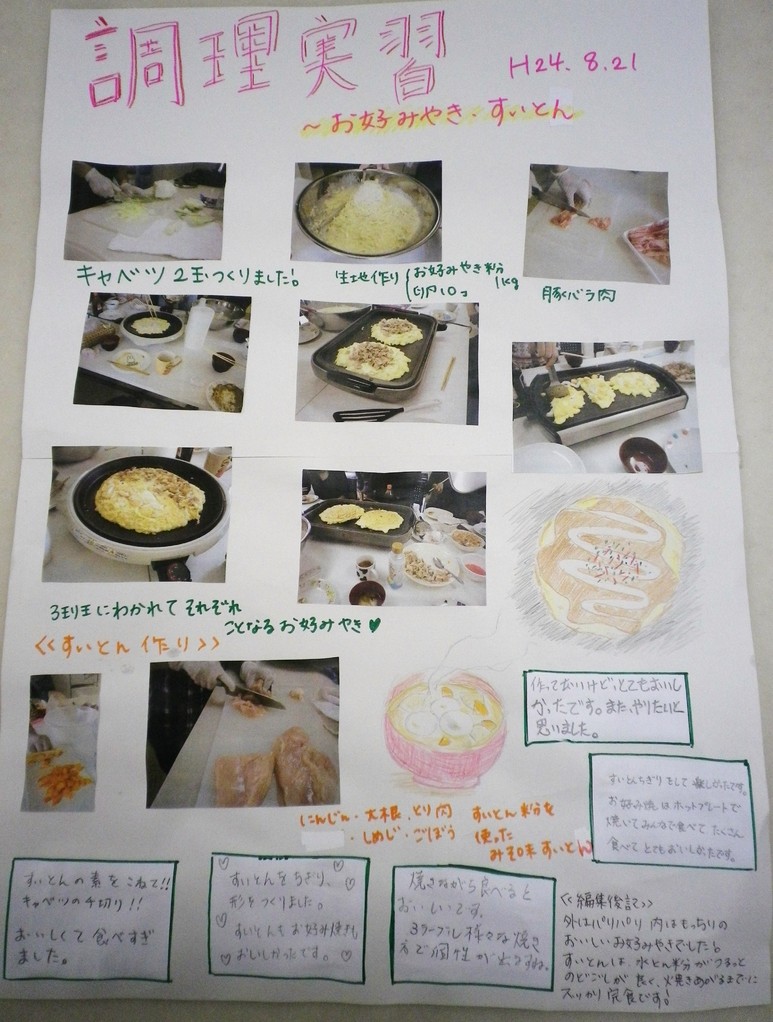 調理実習
H24.8.21
～お好みやき・すいとん
キャベツ2玉つくりました!
生地作り
お好みやき粉
1kg
卵10コ
豚バラ肉
3班にわかれてそれぞれ
ことなるお好みやき♥
<<すいとん作り>>
作ってないけど、とてもおいし
かったです。また、やりたいと
思いました。
すいとんちぎりをして楽しかったです。
お好み焼はホットプレートで
焼いてみんなで食べてたくさん
食べてとてもおいしかったです。
にんじん・大根、とり肉
・しめじ・ごぼう
すいとん粉を
使った
みそ味すいとん
すいとんの素をこねて!!
キャベツの千切り!!
おいしくて食べすぎ
ました。
すいとんをちぎり、
形をつくりました。
すいとんもお好み焼も
おいしかったです。
焼きながら食べると
おいしいです。
3テーブル様々な焼き
方で個性が出ますね。
<<編集後記>>
外はパリパリ内はもっちりの
おいしいお好みやきでした!
すいとんは、水とん粉がつるっと
のどごしが良く、焼きあがるまでに
スッカリ完食です!